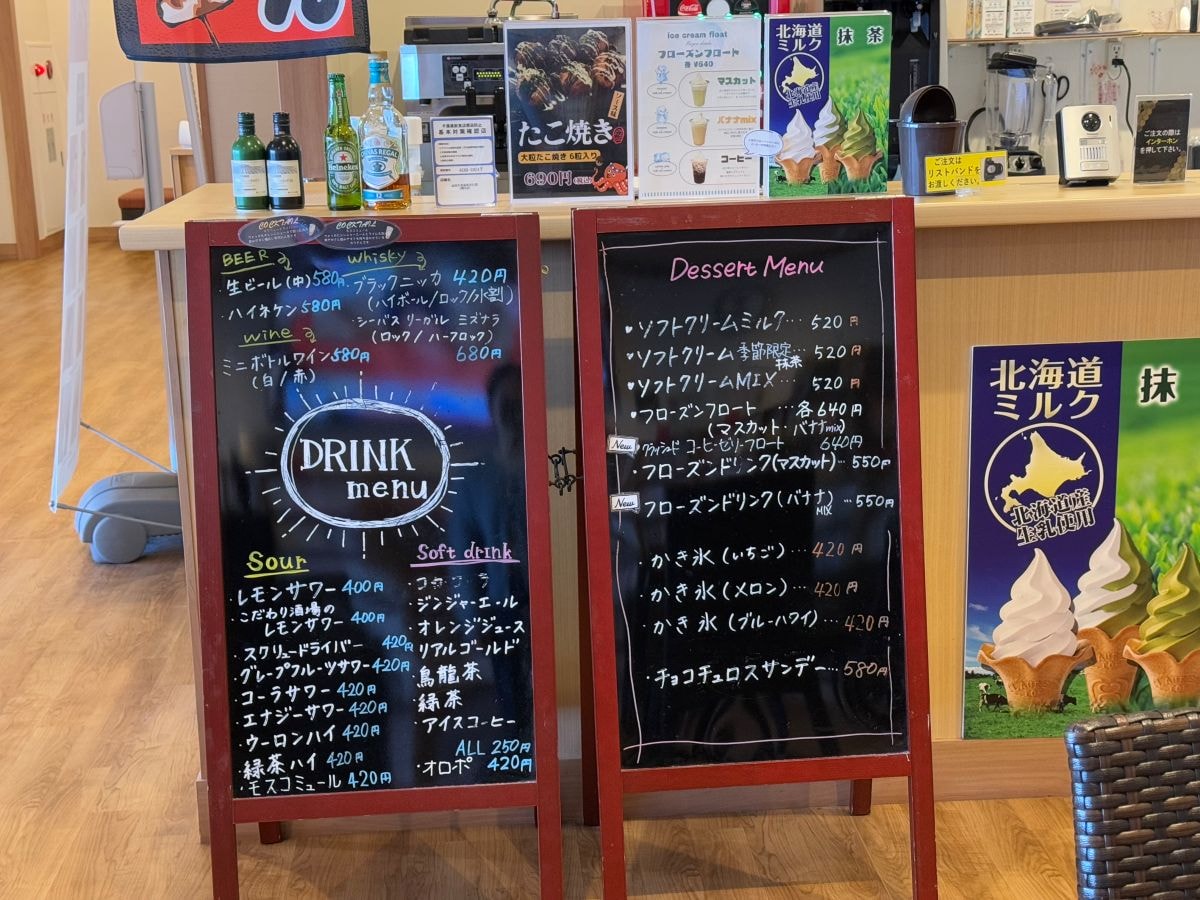 たこ焼き
大粒たこ焼き 6粒入り
690円
ice cream float
フローズンフロート
各 ¥640
マスカット
バナナmix
コーヒー
北海道
ミルク
抹茶
北海道産
生乳使用
基本対策確認店
Heineken
ご注文は
リストバンドを
お渡しください。
ご注文の際は
インターホンを
押して下さい。
COCKTAIL
COCKTAIL
BEER
・生ビール(中)580円
・ハイネケン 580円
wine
ミニボトルワイン580円
(白/赤)
whisky
・ブラックニッカ 420円
(ハイボール/ロック/水割)
・シーバスリーガル ミズナラ
(ロック/ハーフロック)
680円
DRINK
menu
Sour
・レモンサワー 400円
・こだわり酒場の
レモンサワー 400円
・スクリュードライバー 420円
・グレープフルーツサワー 420円
・コーラサワー 420円
・エナジーサワー 420円
・ウーロンハイ 420円
・緑茶ハイ 420円
・モスコミュール 420円
Soft drink
・コカコーラ
・ジンジャーエール
・オレンジジュース
・リアルゴールド
・烏龍茶
・緑茶
・アイスコーヒー
ALL 250円
・オロポ 420円
Dessert Menu
♥ソフトクリームミルク… 520円
♥ソフトクリーム 季節限定… 520円
抹茶
♥ソフトクリームMIX… 520円
・フローズンフロート …各640円
(マスカット・バナナmix)
New
コーヒーゼリーフロート 640円
・フローズンドリンク(マスカット)…550円
New
フローズンドリンク(バナナMIX)…550円
・かき氷(いちご)…420円
・かき氷(メロン)…420円
・かき氷(ブルーハワイ)…420円
・チョコチュロスサンデー…580円
北海道
ミルク
抹
北海道産
生乳使用